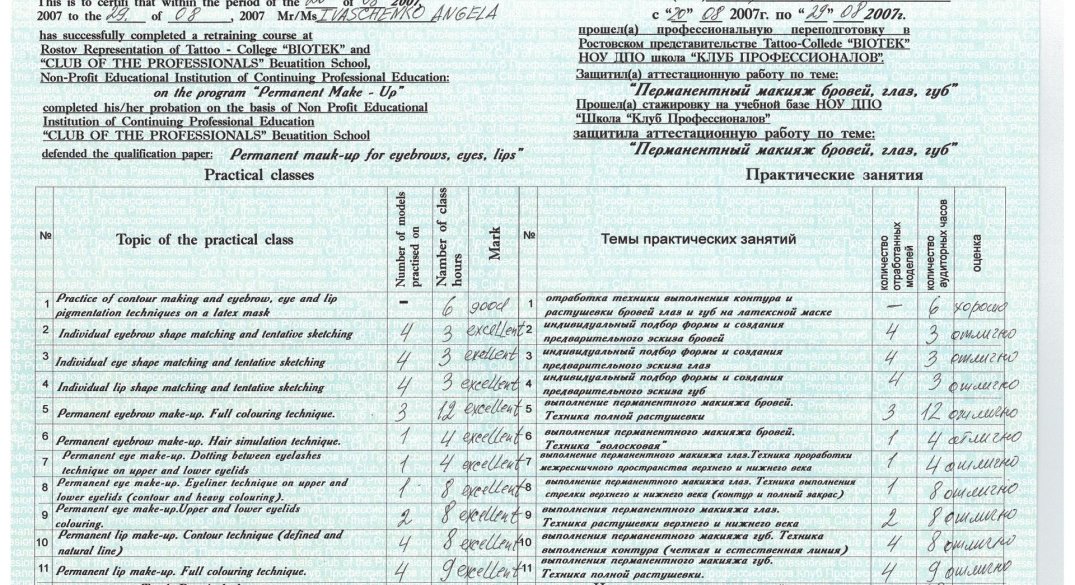 This is to certify that within the period of the "20" of 08 2007,
2007 to the 29. of 08, 2007 Mr/Ms IVASCHENKO ANGELA
has successfully completed a retraining course at
Rostov Representation of Tattoo - College "BIOTEK" and
"CLUB OF THE PROFESSIONALS" Beuatition School,
Non-Profit Educational Institution of Continuing Professional Education:
on the program "Permanent Make - Up"
completed his/her probation on the basis of Non Profit Educational
Institution of Continuing Professional Education
"CLUB OF THE PROFESSIONALS" Beuatition School
defended the qualification paper: Permanent mauk-up for eyebrows, eyes, lips"
Practical classes
№ Topic of the practical class Number of models practised on Namber of class hours Mark
1 Practice of contour making and eyebrow, eye and lip
pigmentation techniques on a latex mask – 6 good
2 Individual eyebrow shape matching and tentative sketching 4 3 excellent
3 Individual eye shape matching and tentative sketching 4 3 exellent
4 Individual lip shape matching and tentative sketching 4 3 excellent
5 Permanent eyebrow make-up. Full colouring technique. 3 12 excellent
6 Permanent eyebrow make-up. Hair simulation technique. 1 4 excellent
7 Permanent eye make-up. Dotting between eyelashes
technique on upper and lower eyelids 1 4 excellent
8 Permanent eye make-up. Eyeliner technique on upper and
lower eyelids (contour and heavy colouring). 1 8 excellent
9 Permanent eye make-up.Upper and lower eyelids
colouring. 2 8 excellent
10 Permanent lip make-up. Contour technique (defined and
natural line) 4 8 excellent
11 Permanent lip make-up. Full colouring technique. 4 9 excellent
с "20" 08 2007г. по "29" 08 2007г.
прошел(а) профессиональную переподготовку в
Ростовском представительстве Tattoo-Collede "BIOTEK"
НОУ ДПО школа "КЛУБ ПРОФЕССИОНАЛОВ".
Защитил(а) аттестационную работу по теме:
"Перманентный макияж бровей, глаз, губ"
Прошел(а) стажировку на учебной базе НОУ ДПО
"Школа "Клуб Профессионалов"
защитила аттестационную работу по теме:
"Перманентный макияж бровей, глаз, губ"
Практические занятия
№ Темы практических занятий количество отработанных моделей количество аудиторных часов оценка
1 отработка техники выполнения контура и
растушевки бровей глаз и губ на латексной маске – 6 хорошо
2 индивидуальный подбор формы и создания
предварительного эскиза бровей 4 3 отлично
3 индивидуальный подбор формы и создания
предварительного эскиза глаз 4 3 отлично
4 индивидуальный подбор формы и создания
предварительного эскиза губ 4 3 отлично
5 выполнение перманентного макияжа бровей.
Техника полной растушевки 3 12 отлично
6 выполнения перманентного макияжа бровей.
Техника "волосковая" 1 4 отлично
7 выполнение перманентного макияжа глаз.Техника проработки
межресничного пространства верхнего и нижнего века 1 4 отлично
8 выполнение перманентного макияжа глаз. Техника выполнения
стрелки верхнего и нижнего века (контур и полный закрас) 1 8 отлично
9 выполнения перманентного макияжа глаз.
Техника растушевки верхнего и нижнего века 2 8 отлично
10 выполнения перманентного макияжа губ. Техника
выполнения контура (четкая и естественная линия) 4 8 отлично
11 выполнения перманентного макияжа губ.
Техника полной растушевки. 4 9 отлично